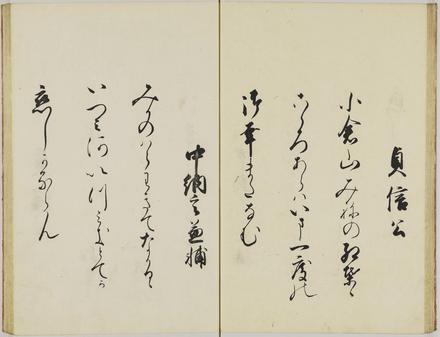 貞信公
小倉山みねの紅葉々
こゝろあらはいま一度の
御幸またなむ
中納言兼輔
みかのはらわきてなかるゝ
いつみ河いつみきとてか
恋しかるらん